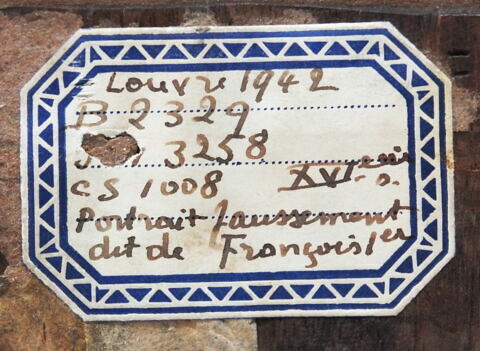 Louvre 1942
B 2329
3258
CS 1008 XVI
Portrait faussement
dit de François 1er